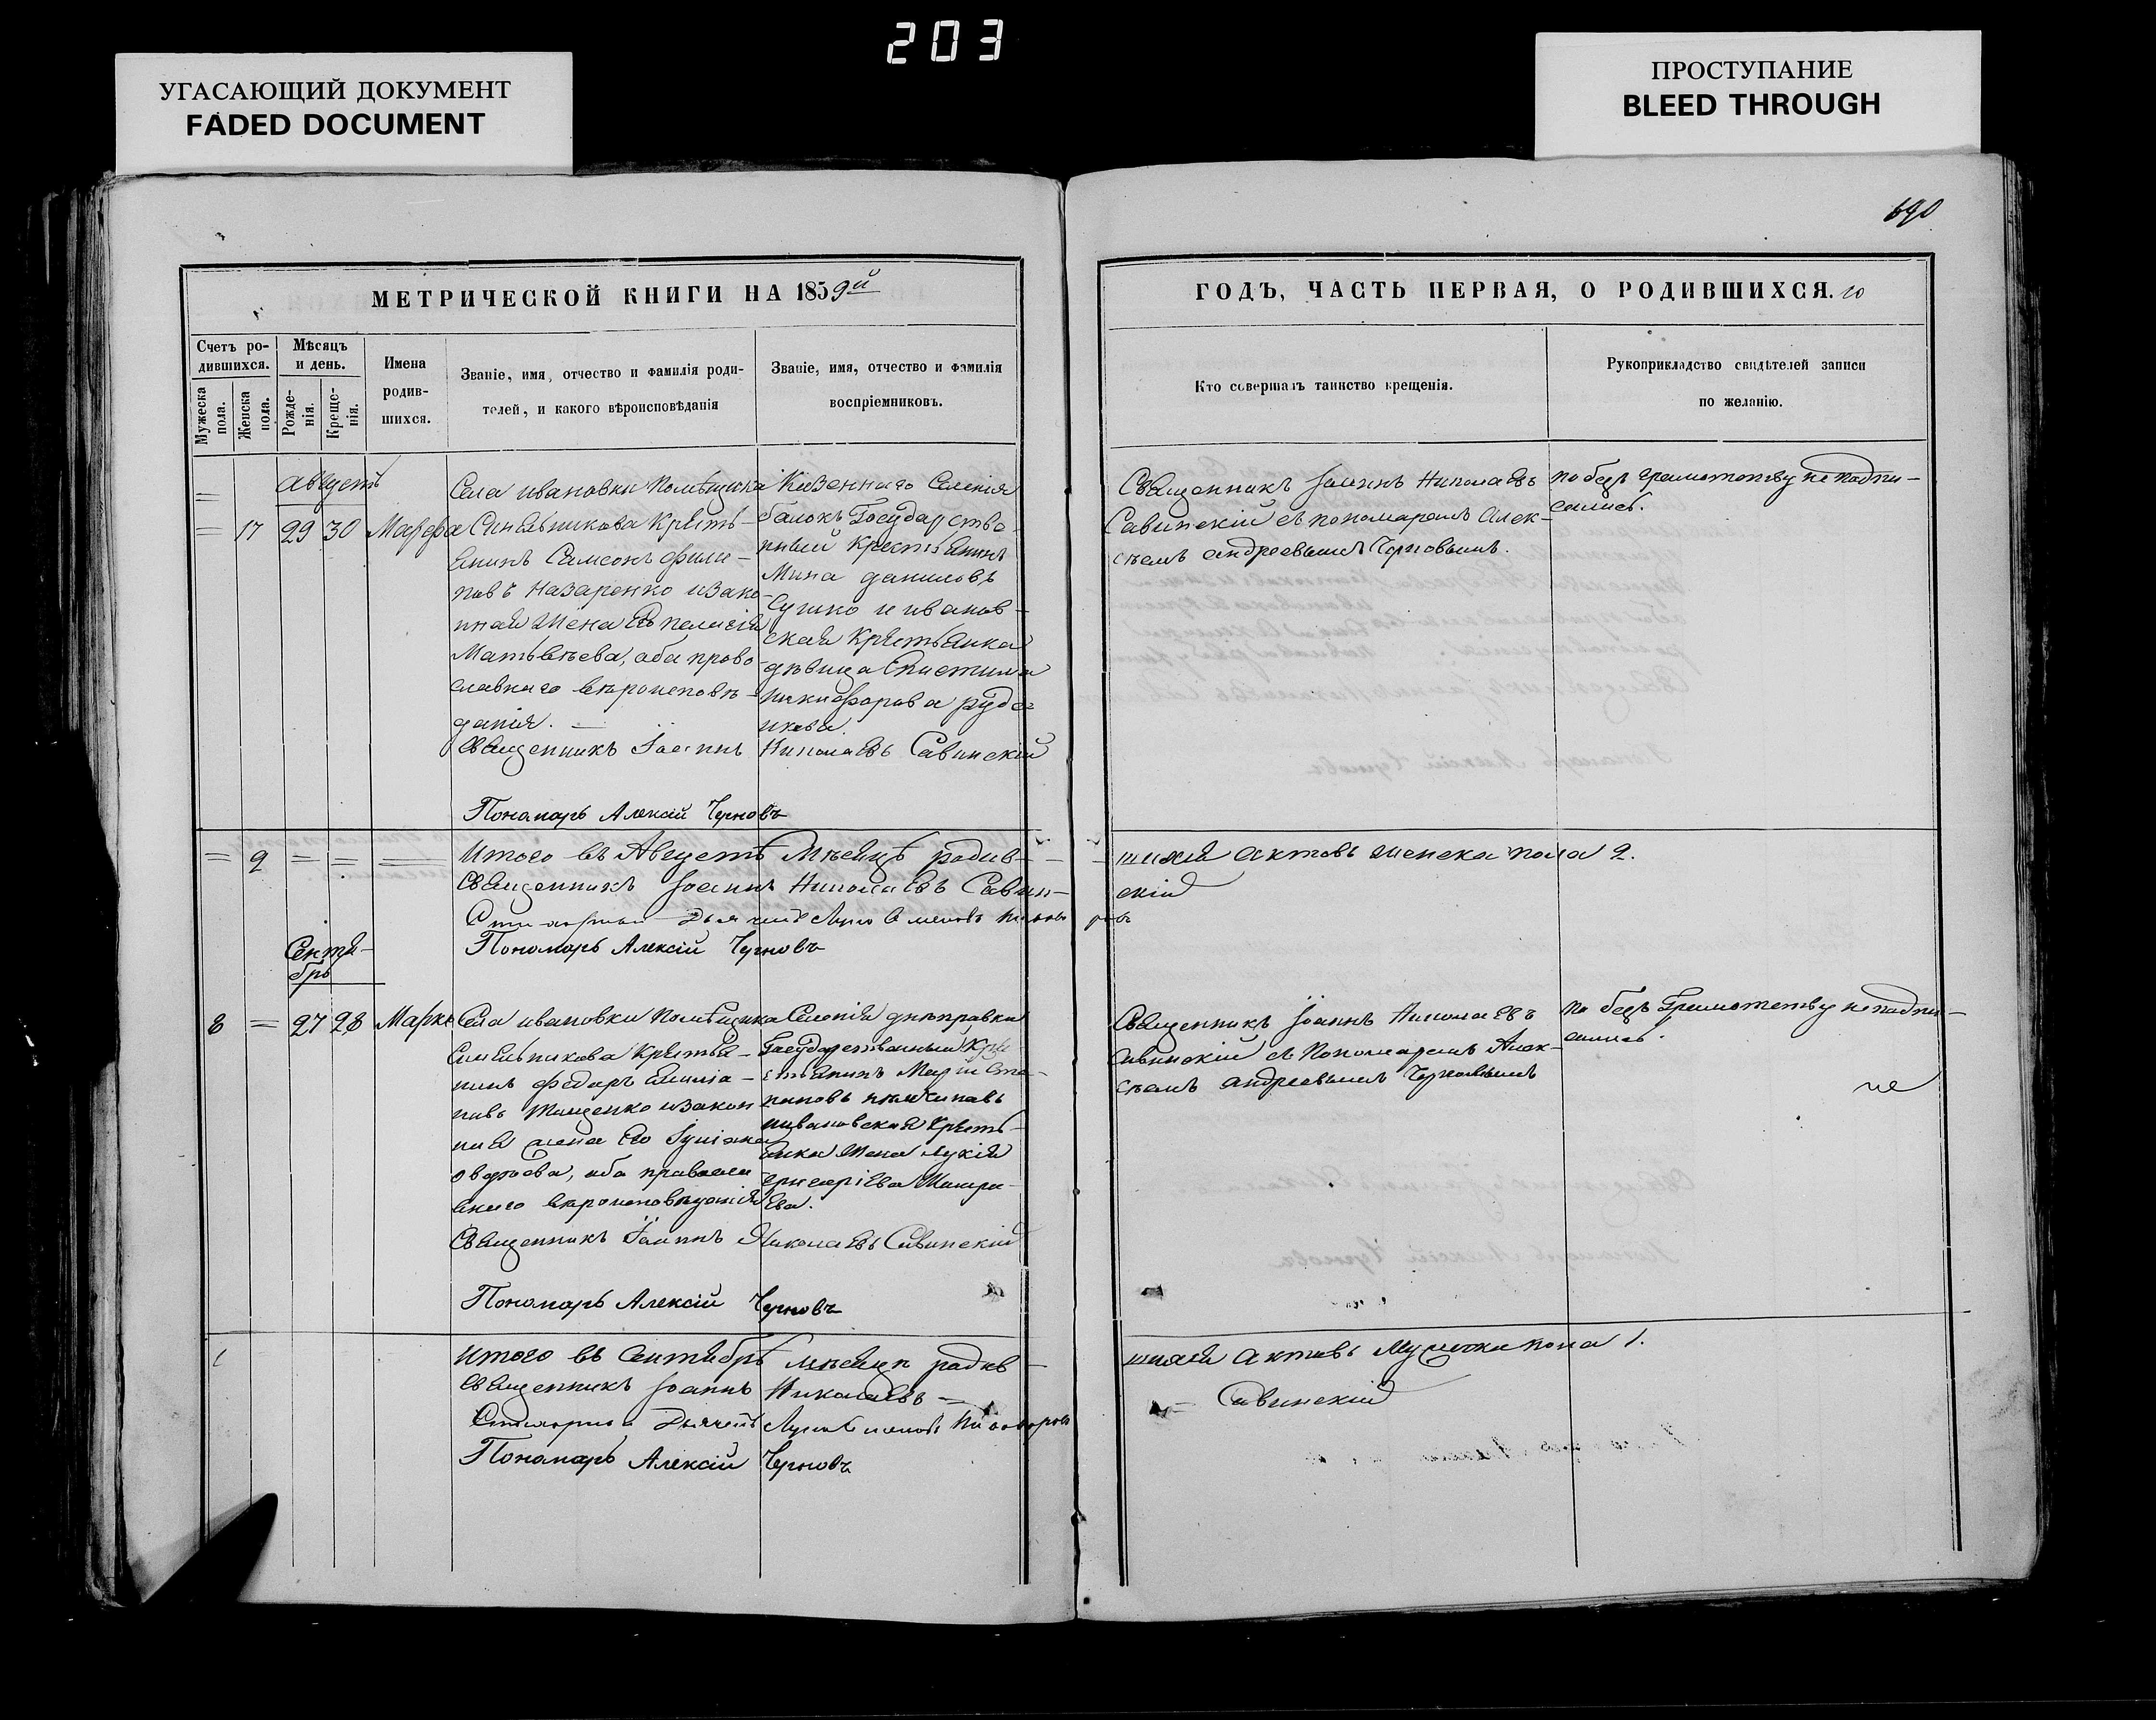 203
УГАСАЮЩИЙ ДОКУМЕНТ
FADED DOCUMENT
ПРОСТУПАНИЕ
BLEED THROUGH
690
МЕТРИЧЕСКОЙ КНИГИ НА 1859й
ГОДЪ, ЧАСТЬ ПЕРВАЯ, О РОДИВШИХСЯ.
Счетъ ро-
дившихся.
Мужеска пола.
Женска пола.
Мѣсяцъ
и день.
Рожде-
нія.
Креще-
нія.
Имена
родив-
шихся.
Званіе, имя, отчество и фамилія роди-
телей, и какого вѣроисповѣданія
Званіе, имя, отчество и фамилія
воспріемниковъ.
Кто совершалъ таинство крещенія.
Рукоприкладство свидѣтелей записи
по желанію.
Августъ
17 29 30 Марфа
Села ивановки Помѣщика
Синельникова Крѣсть-
янинъ Самсонъ фили-
повъ Назаренко изако-
нная жена Его пелагія
Матвѣева, оба право-
славнаго вѣроисповѣ-
данія.
Казеннаго Селенія
балокъ Государстве-
нный крестьянинъ
Мина даниловъ
Сушко и иванов-
ская Крѣстьянка
дѣвица
никифорова
Священникъ Іоаннъ Николаевъ Савинскій
Пономарь Алексій Черновъ
Священникъ Іоаннъ Николаевъ
Савинскій съ пономаремъ Алек-
сѣемъ андреевымъ Черновымъ.
по безъ грамотству не подпи-
сались.
= 2 = = = Итого въ Августѣ Мѣсяцѣ родив-
шихся актовъ женска пола 2.
Священникъ Іоаннъ Николаевъ Савин-
скій
Пономарь Алексій Черновъ
Сентя-
брь
8 = 27 28 Марко
Села ивановки Помѣщика
Синельникова Крѣстья-
нинъ федоръ Емилія-
новъ Тищенко изакон
ная жена Его Іуліана
оба правосла
внаго вѣроисповѣданія
Селенія днѣпровки
Государственный Кре-
стьянинъ
ивановская Крѣсть-
янка жена лукія
григоріева
Священникъ Іоаннъ Николаевъ Савинскій
Пономарь Алексій Черновъ
Священникъ Іоаннъ Николаевъ
Савинскій съ Пономаремъ Алек-
сѣемъ андреевымъ Черновымъ
по безъ Грамотству неподпи-
сались.
1 Итого въ Сентябрѣ мѣсяцѣ родив-
шихся актовъ Мужеска пола 1.
Священникъ Іоаннъ Николаевъ =
= Савинскій
Пономарь Алексій Черновъ